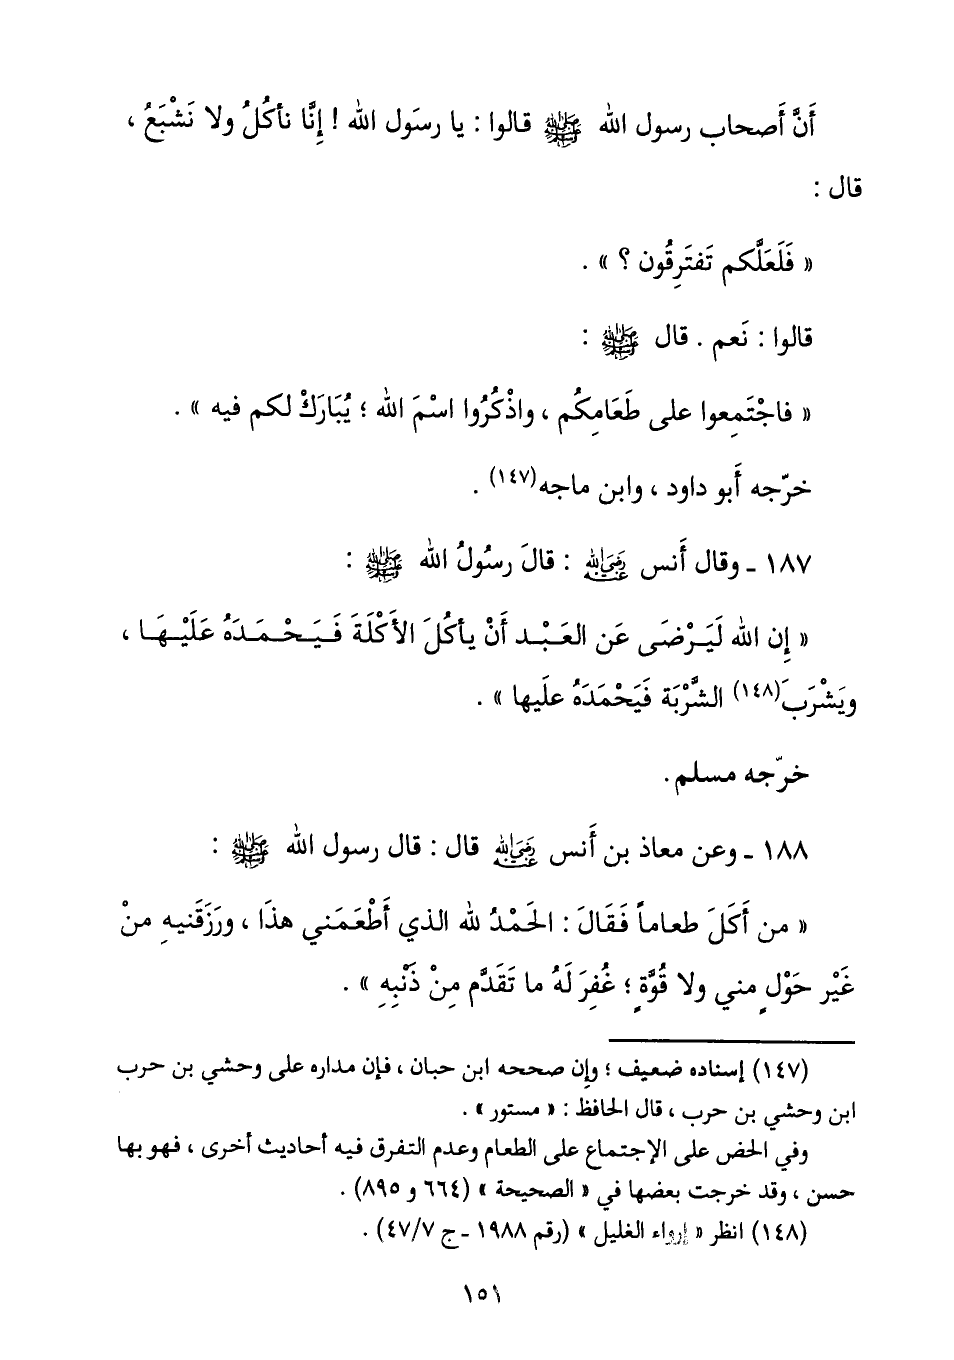 أَنَّ أَصحاب رسول الله ﷺ قالوا : يا رسَول الله ! إِنَّا نأكُلُ ولا نَشْبَعُ ،
قال :
« فَلَعَلَّكم تَفتَرِقُون ؟ » .
قالوا : نَعم . قال ﷺ :
« فاجْتَمِعوا على طَعَامِكُم ، واذْكُرُوا اسْمَ الله ؛ يُبَارَكْ لكم فيه » .
خرّجه أَبو داود ، وابن ماجه(١٤٧) .
١٨٧ ـ وقال أَنس رَضِيَ اللهُ عَنْهُ : قالَ رسُولُ الله ﷺ :
« إِن الله لَيَرْضَى عَن العَبْد أَنْ يأكُلَ الأَكْلَةَ فَيَحْمَدَهُ عَلَيْهَا ،
ويَشْرَبَ(١٤٨) الشَّرْبَة فَيَحْمَدَهُ علَيها » .
خرّجه مسلم .
١٨٨ ـ وعن معاذ بن أَنس رَضِيَ اللهُ عَنْهُ قال : قال رسول الله ﷺ :
« من أَكَلَ طعاماً فَقَالَ : الحَمْدُ لله الذي أَطْعَمَني هذَا ، ورَزَقَنيهِ منْ
غَيْر حَوْلٍ مني ولا قُوَّةٍ ؛ غُفِرَ لَهُ ما تَقَدَّم مِنْ ذَنْبِهِ » .
(١٤٧) إسناده ضعيف ؛ وإن صححه ابن حبان ، فإن مداره على وحشي بن حرب
ابن وحشي بن حرب ، قال الحافظ : « مستور » .
وفي الحض على الإجتماع على الطعام وعدم التفرق فيه أحاديث أخرى ، فهو بها
حسن ، وقد خرجت بعضها في « الصحيحة » (٦٦٤ و ٨٩٥) .
(١٤٨) انظر « إرواء الغليل » (رقم ١٩٨٨ ـ ج ٤٧/٧) .
١٥١